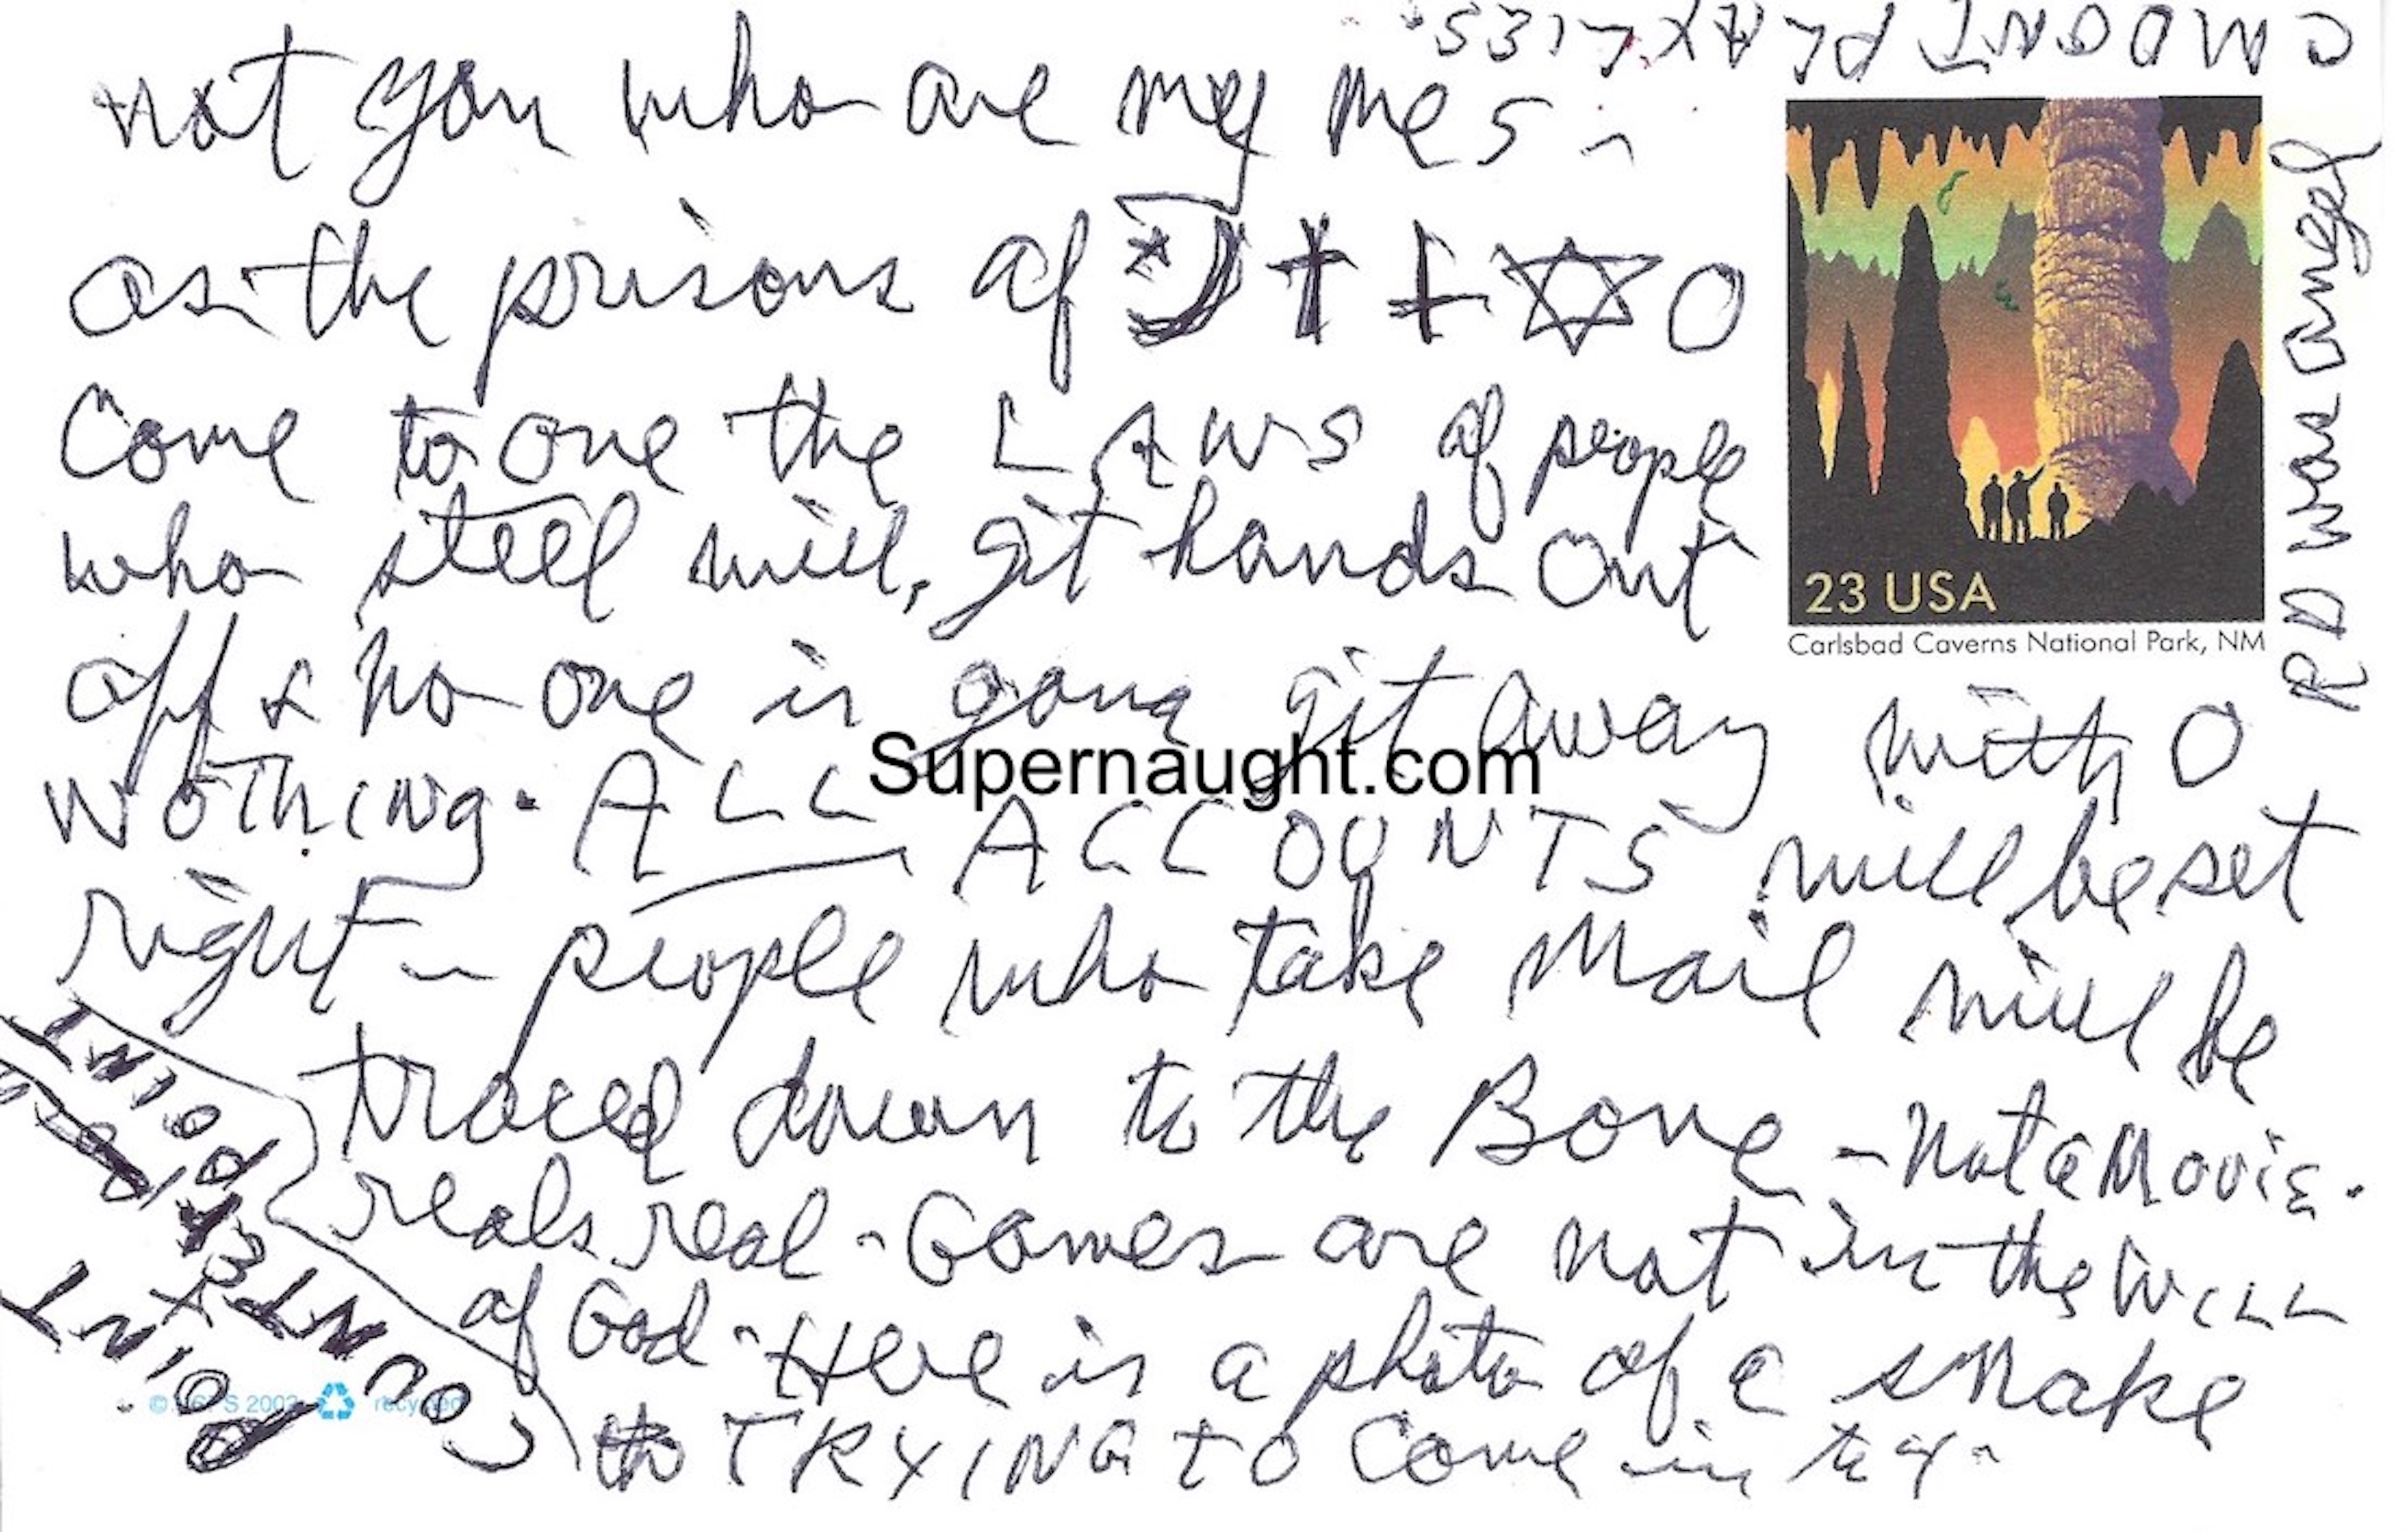 not you who are my mes
as the prisons of
Come to one the LAWS of people
who steel will, git hands Cut
off & no one is gona git away with O
NOTHiNg. ALL ACCOUNTS will be set
right - people who take Mail will be
traced down to the Bone - Not a Movie.
reals real - Games are not in the WiLL
of God - Here is a photo of a snake
TRYING to Come in to
RD was angel
POINT
COUNTER
POINT
23 USA
Carlsbad Caverns National Park, NM
© USPS 2002 recycled
Supernaught.com